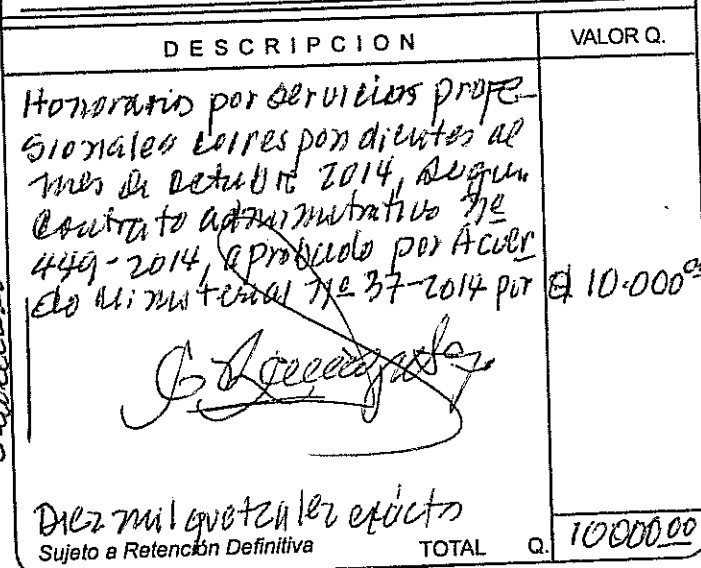 DESCRIPCION VALOR Q.
Honorarios por servicios profe-
sionales correspondientes al
mes de octubre 2014, segun
contrato administrativo Nº
449-2014, aprobado por Acuer
do Ministerial Nº 37-2014 por Q 10.000.00
Diez mil quetzales exacto
Sujeto a Retención Definitiva TOTAL Q. 10000.00